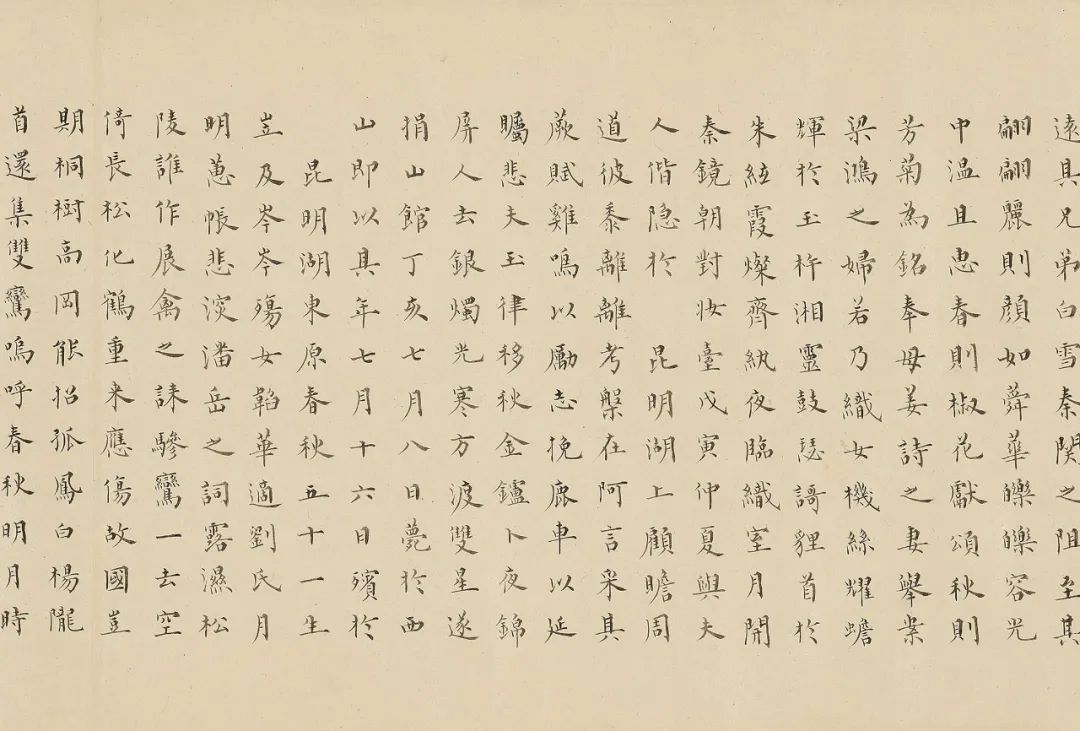 遠具兄弟白雪秦関之阻至其
翩翩麗則顔如蕣華皪皪容光
中温且惠春則椒花獻頌秋則
芳菊為銘奉母姜詩之妻舉案
梁鴻之婦若乃織女機絲耀蟾
輝於玉杵湘靈鼓瑟謌貍首於
朱絃霞燦齊紈夜臨織室月開
秦鏡朝對妝臺戊寅仲夏與夫
人偕隐於昆明湖上顧瞻周
道彼黍離離考槃在阿言采其
蕨賦雞鳴以勵志挽鹿車以延
矚悲夫玉律移秋金鑪卜夜錦
屏人去銀燭光寒方渡雙星遂
捐山館丁亥七月八日薨於西
山即以其年七月十六日殯於
昆明湖東原春秋五十一生
岦及岑岑殤女韜華適劉氏月
明蕙帳悲深潘岳之詞露濕松
陵誰作展禽之誄驂鸞一去空
倚長松化鶴重来應傷故國豈
期桐樹高岡能招孤鳳白楊隴
首還集雙鸞嗚呼春秋明月時